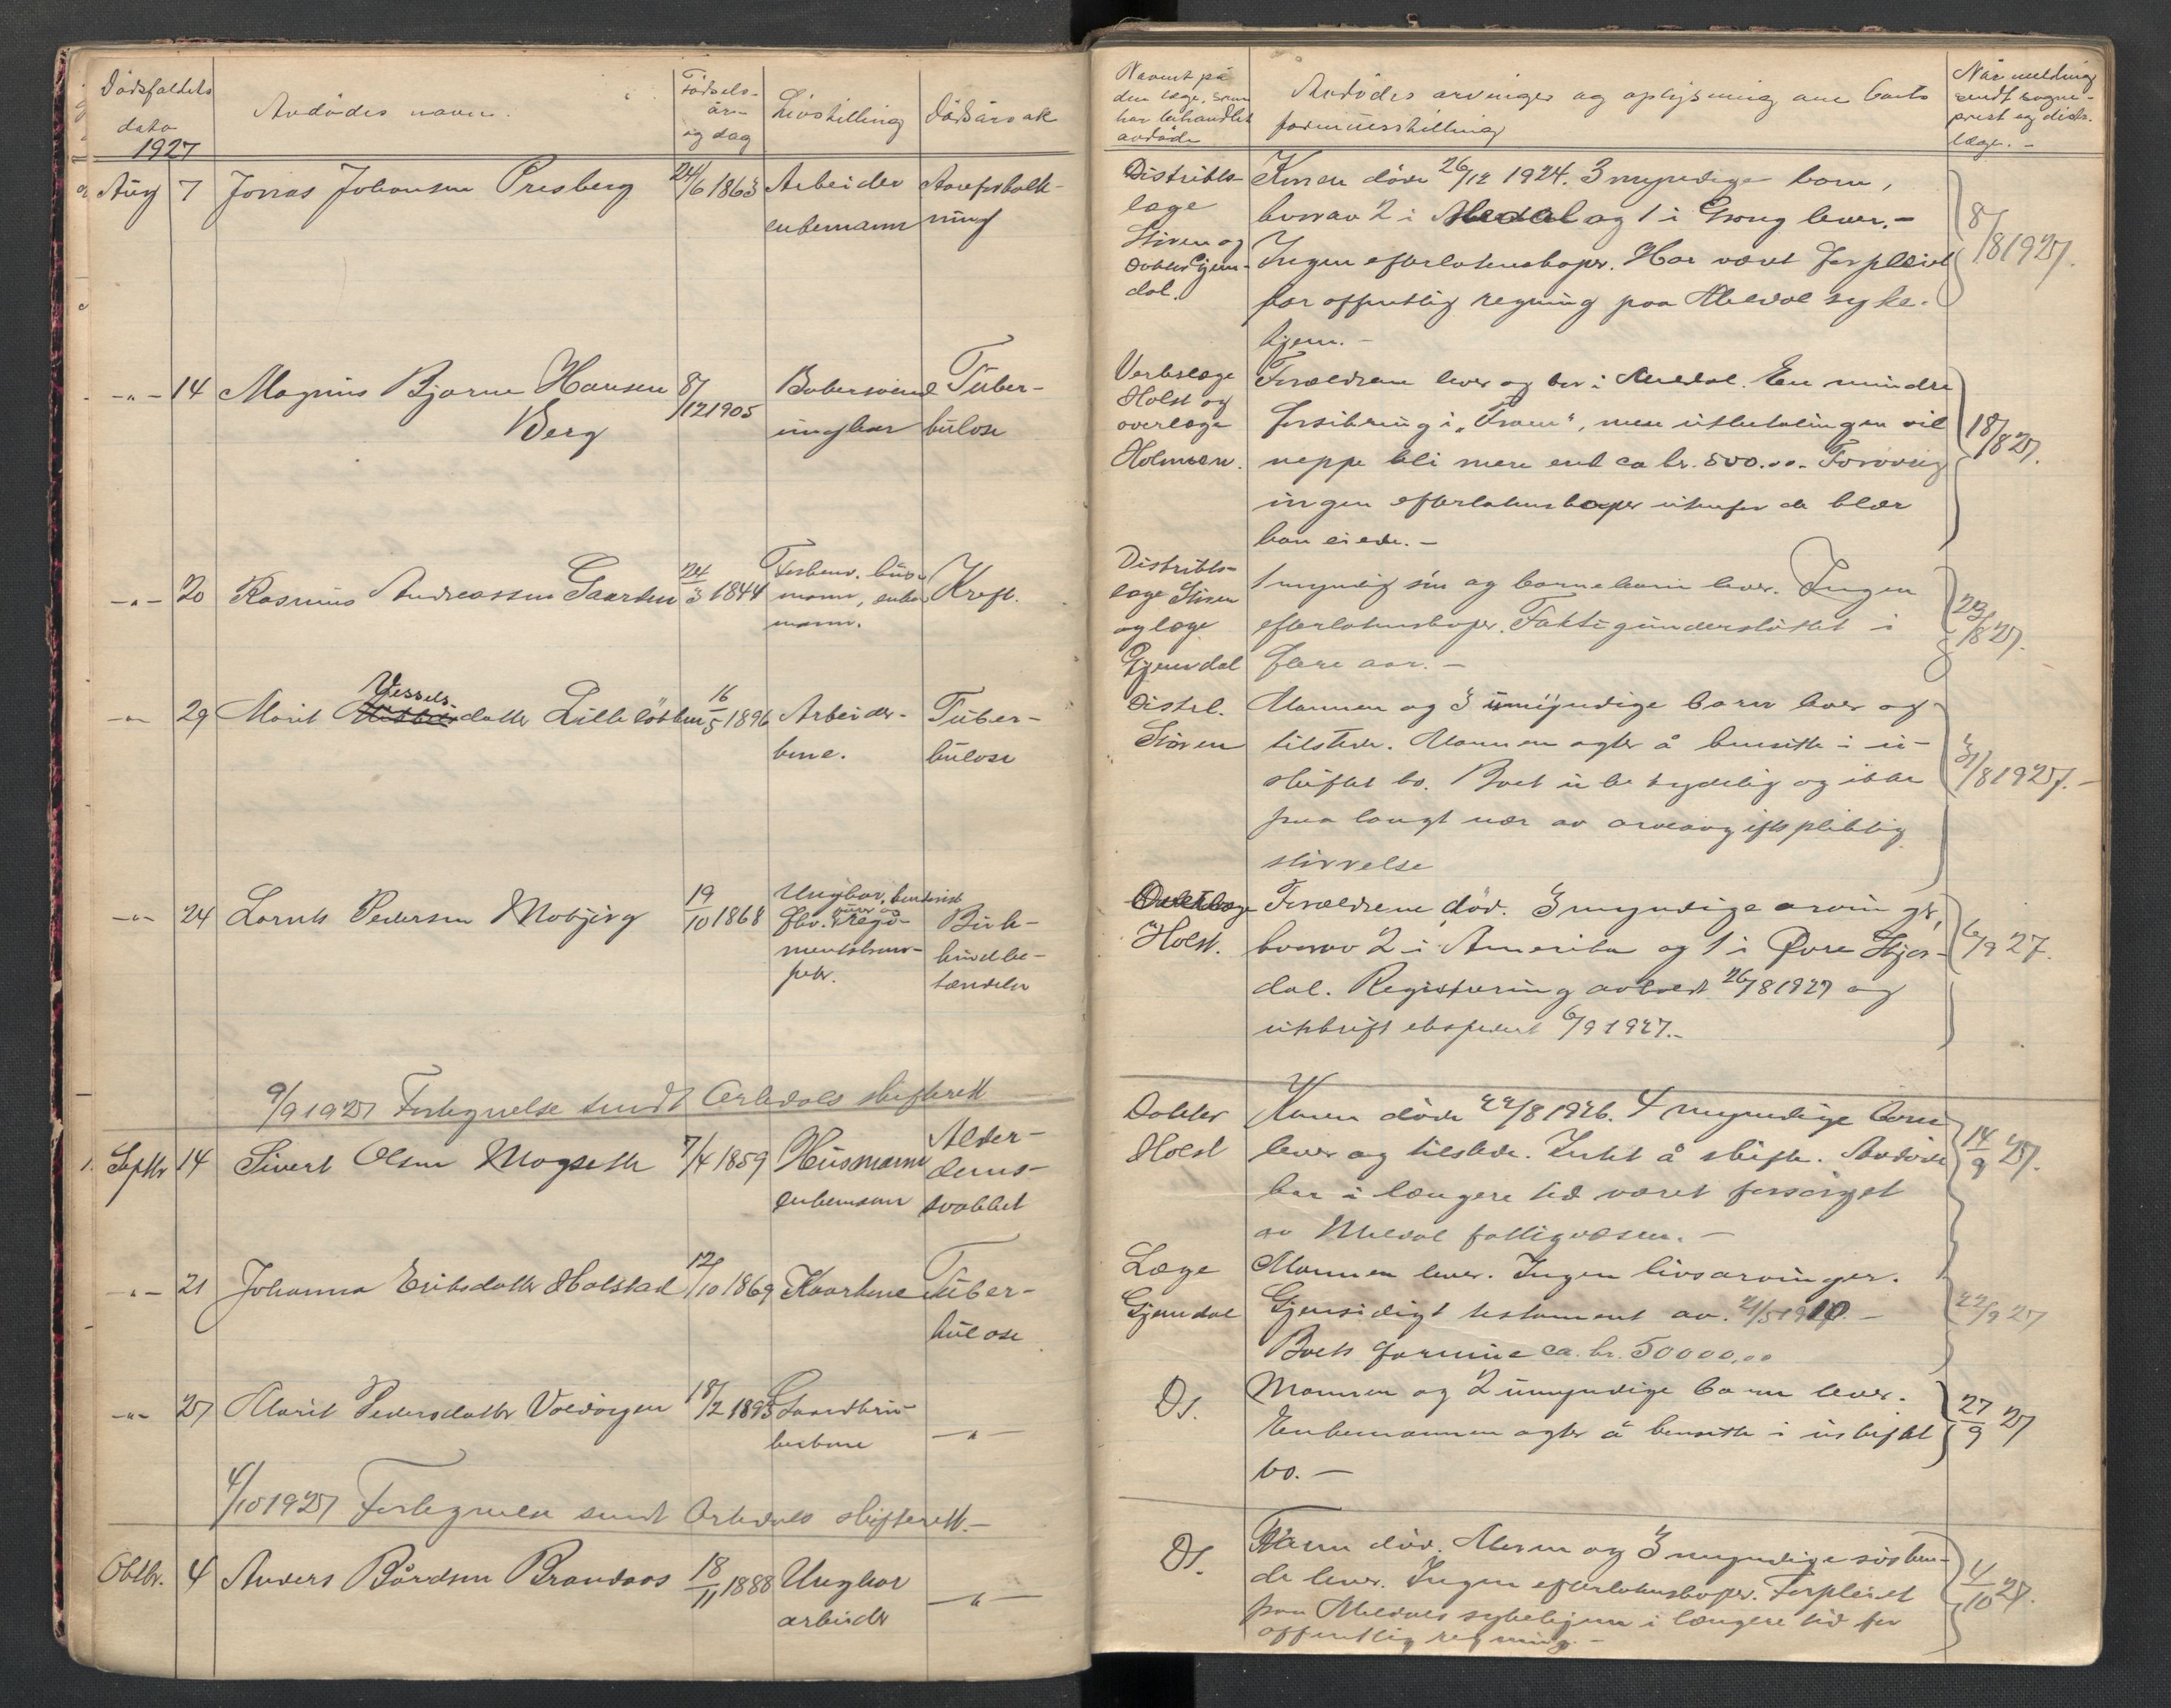 Dödsfaldets
dato
1927
Avdödes navn.
Fødsels-
år-
og dag
Livsstilling
Dödsårsak
Aug 7 Jonas Johansen Presberg 24/6 1863 Arbeider Aareforkalk-
enkemann ning
-"- 14 Magnus Bjarne Hansen 8/12 1905 Bakersvend Tuber-
Berg ungkar kulose
-"- 20 Rasmus Andreassen Gaarden 24/3 1844 Forhenv. hus- Kreft.
mann, enke
mann.
-"- 29 Marit Vessels-datter Lilleløkken 16/5 1896 Arbeider- Tuber-
kone. kulose
-"- 24 Lornts Pedersen Mobjerg 19/10 1868 Ungkar, kendt
fhv. Regi- Buk-
mentshorn- hindbe-
tændelse
9/9 1927 Fortegnelse sendt Orkdals skifterett
Septbr 14 Sivert Olsen Mogseth 7/4 1859 Husmann Alder-
enkemann doms-
svakhet
-"- 21 Johanna Eriksdatter Holstad 12/10 1869 Kaarkone Tuber-
kulose
-"- 27 Marit Pedersdatter Voldøygen 18/2 1893 Gaardbru-
kerkone -"-
4/10 1927 Fortegnelse sendt Orkdals skifterett.-
Oktbr. 4 Anders Bårdsen Brandaas 18/11 1888 Ungkar
arbeider -"-
Navnet på
den læge, som
har behandlet
avdøde
Avdødes arvinger og oplysning om boets
formuesstilling
Når melding
sendt sogne-
prest og distr.
læge.-
Distrikts- Konen døde 26/12 1924. 3 myndige barn,
læge hvorav 2 i Meldal og 1 i Grong lever.- 8/8 1927.
Støren og Ingen efterlatenskaper. Har været forpleiet
Doktor Gjem- for offentlig regning paa Meldal syke-
dal. hjem.-
Verkslæge Forældrene lever og bor i Meldal. En mindre
Holst og forsikring i "Fram", men utbetalingen vil 18/8 27.
overlæge neppe bli mere end ca kr. 500.00. Forøvrig
Holmsen. ingen efterlatenskaper utenfor de klær
han eiede.-
Distrikts- 1 myndig søn og barnebarn lever. Ingen
læge Støren efterlatenskaper. Fattigunderstøttet i
og læge flere aar.-
Gjemdal
Distrl. Mannen og 3 umyndige barn lever og
Støren tilstede. Mannen agter å bensitte i u-
skiftet bo. Boet ubetydelig og ikke 31/8 1927.-
paa langt nær av arveavgiftspliktig
størrelse
Holst. Forældrene død. 3 myndige arvinger,
hvorav 2 i Amerika og 1 i Øvre Stjør- 6/9 27.
dal. Registrering avholdt 26/8 1927 og
utskrift ekspedert 6/9 1927.-
Doktor Konen døde 22/8 1926. 4 myndige barn
Holst lever og tilstede. Intet å skifte. Avdøde 14/9 27.
har i længere tid været forsørget
av Meldal fattigvæsen.-
Læge Mannen lever. Ingen livsarvinger.
Gjemdal Gjensidigt testament av. 22/9 27
Boets formue ca. kr. 50000,00
Ds. Mannen og 2 umyndige barn lever.
Enkemannen agter å bensitte i uskiftet 27/9 27
bo.-
Ds. Faren død. Moren og 3 myndige søsken-
de lever. Ingen efterlatenskaper. Forpleiet 4/10 27.
paa Meldals sykehjem i længere tid for
offentlig regning.-